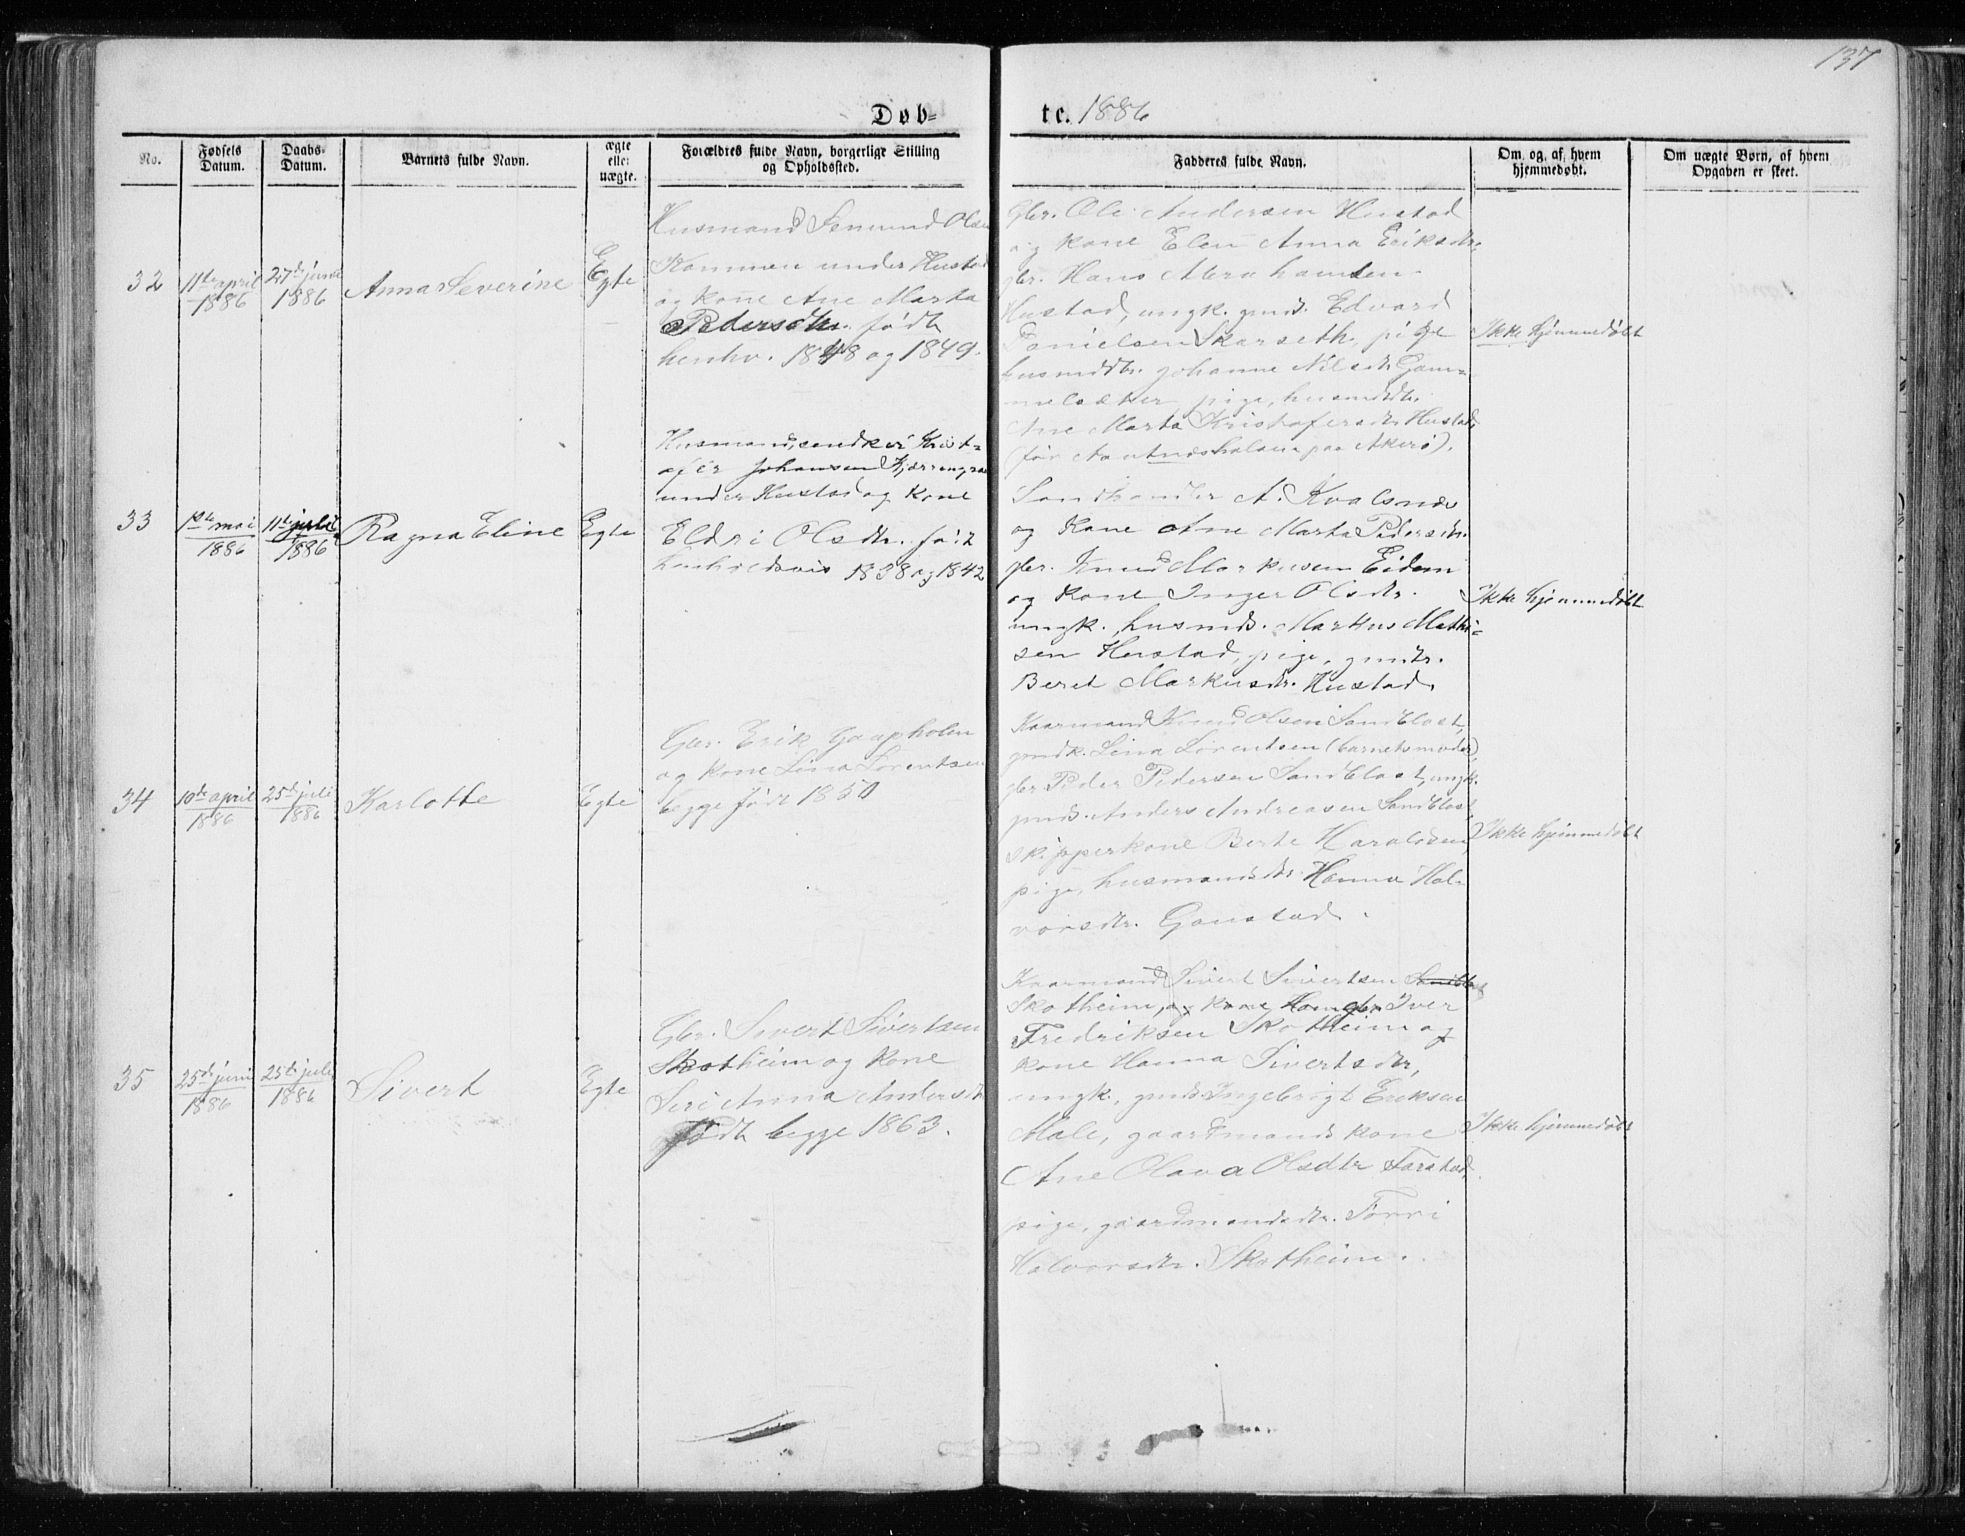 137
Døb-
te. 1886
No.
Fødsels
Datum.
Daabs-
Datum.
Barnets fulde Navn.
ægte
eller
uægte.
Forældres fulde Navn, borgerlige Stilling
og Opholdssted.
Fadderes fulde Navn.
Om og af hvem
hjemmedøbt.
Om uægte Børn, af hvem
Opgaven er skeet.
32
11te april
1886
27de juni
1886
Anna Severine
Egte
Husmand Olsen
under Hustad
og kone Ane Marta
Pedersdtr. født
henhv. 1848 og 1849.
gbr. Ole Andersen Hustad
og kone Elen Anna Eriksdtr.
gbr. Hans Abrahamsen
Hustad, ungk. gmds. Edvard
Danielsen Skarseth, pige
husmdtr. Johanne Nilsdtr. Gam-
melsæter, pige, husmdtr.
Ane Marta Kristofersdtr. Hustad,
paa Akerø).
Ikke hjemmedøbt
33
mai
1886
11te juli
1886
Ragna Eline
Egte
Husmand, Krist-
ofer Johansen
under Hustad og kone
Eldri Olsdtr. født
henholdsvis 1838 og 1842
Landhandler A. Kvalsnæs
og kone Ane Marta Pedersdtr.
gbr. Knud Markusen Eidem
og kone Inger Olsdtr.
ungk., husmds. Markus Mathi-
sen Hustad, pige, gmdtr.
Beret Markusdtr. Hustad.
Ikke hjemmedøbt
34
10de april
1886
25de juli
1886
Karlotte
Egte
Gbr. Erik Gaapholen
og kone Lina Lorentsen
begge født 1850
Kaarmand Knud Olsen Sandblost,
gmdk. Lina Lorentsen (barnets moder),
gbr. Peder Pedersen Sandblost, ungk.
gmds. Anders Andreasen Sandblost,
skipperkone Berte Haraldsen,
pige, husmandsdtr. Hanna Hal-
vorsdtr. Gaustad.
Ikke hjemmedøbt
35
25de juni
1886
25de juli
1886
Sivert
Egte
Gbr. Sivert Sivertsen
Skotheim og kone
Siri Anna Andersdtr
født begge 1863.
Kaarmand Sivert Sivertsen
Skotheim, og kone gbr. Iver
Fredriksen Skotheim og
kone Hanna Sivertsdtr,
ungk., gmds. Ingebrigt Eriksen
Male, gaardmandskone
Ane Olava Olsdtr Farstad,
pige, gaardmandsdtr.
Halvorsdtr. Skotheim.
Ikke hjemmedøbt